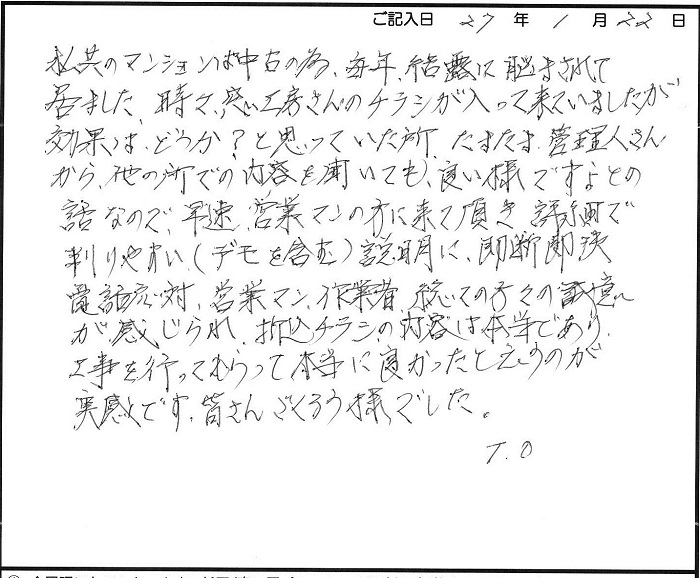 ご記入日 27年 1月 22日
私共のマンションは中古の為、毎年、結露に悩まされて
居ました、時々、窓工房さんのチラシが入って来ていましたが
効果は、どうか?と思っていた所、たまたま、管理人さん
から、他の所での内容を聞いても、良い様ですよとの
話なので、早速、営業マンの方に来て頂き
判りやすい(デモを含む)説明に、即断即決
電話応対、営業マン、作業者、続ての方々の誠意
が感じられ、折込チラシの内容は本当であり、
工事を行ってもらって本当に良かったと云うのが
実感です、皆さんごくろう様でした。
T.O